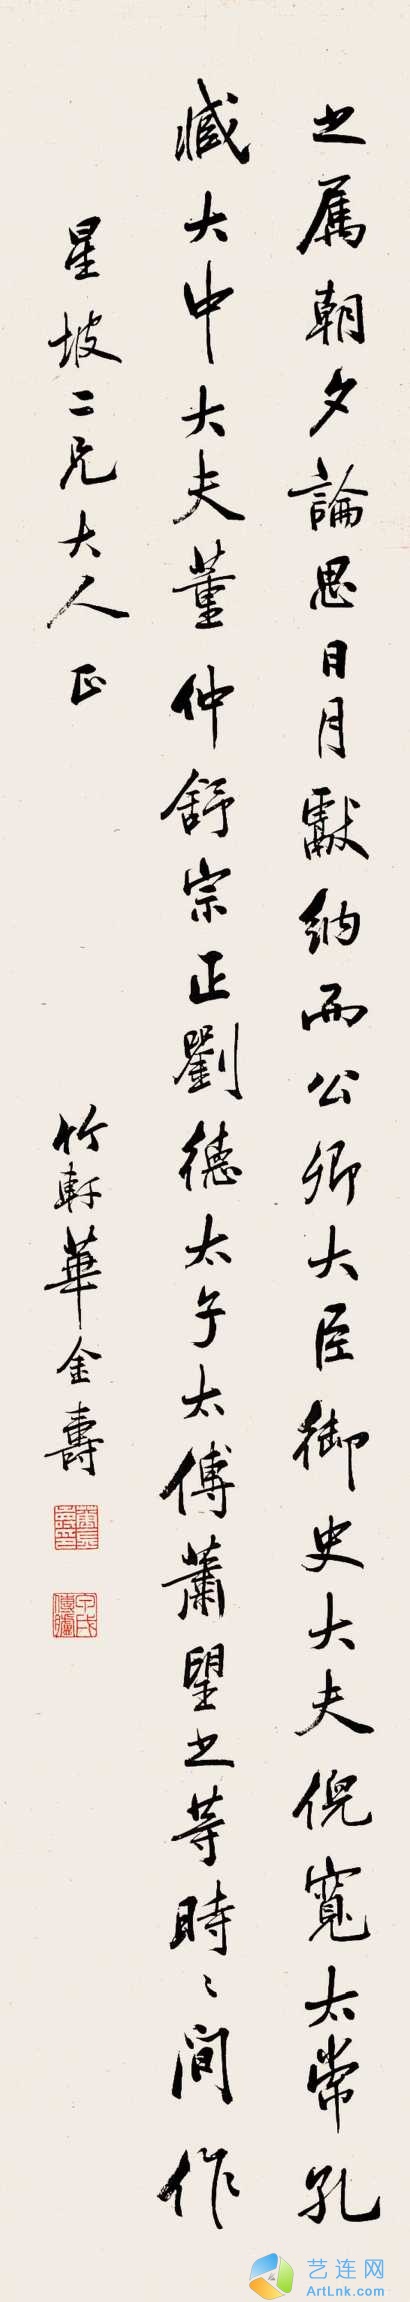 之属朝夕論思日月獻納而公卿大臣御史大夫倪寬太常孔
臧大中大夫董仲舒宗正劉德太子太傅蕭望之等時〻間作
星坡二兄大人正
竹軒華金壽
華金壽印
甲戌傳臚
艺连网
ArtLnk.com